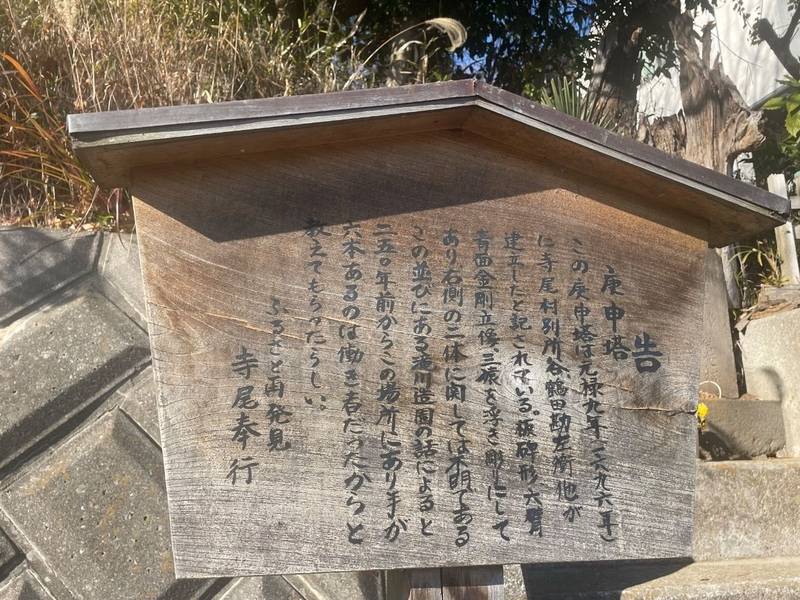 告
庚申塔
この庚申塔は元禄九年(一六九六年)
に寺尾村別所谷鶴田勘左衛他が
建立したと記されている。板碑形六臂
青面金剛立像、三猿を浮き彫にして
あり右側の二体に関しては不明である
この並びにある滝川造園の話によると
二五〇年前からこの場所にあり手が
六本あるのは働き者だったからと
教えてもらったらしい。
ふるさと再発見
寺尾奉行